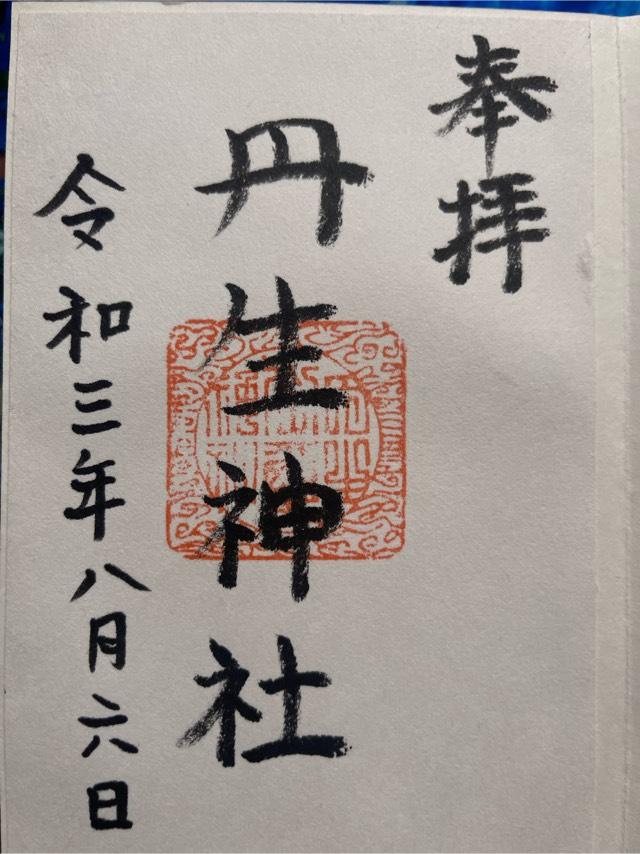 奉拝
丹生神社
令和三年八月六日